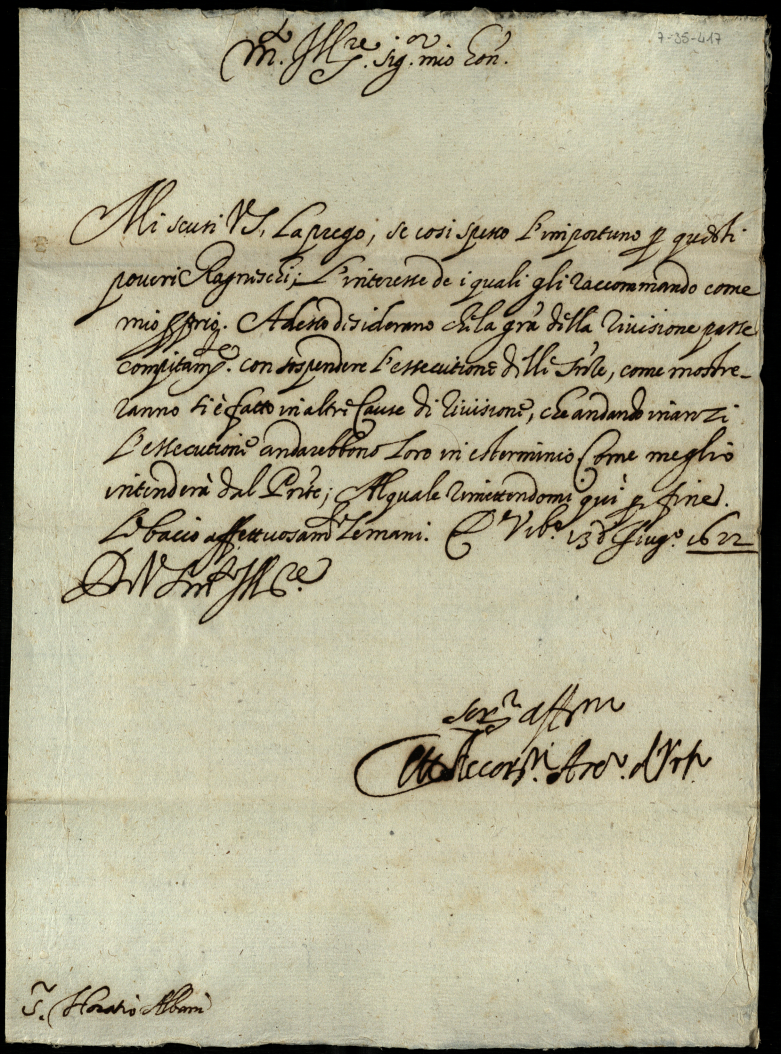 7-35-417
M. Ill.re Sig.r mio Hon.
Mi scusi VS. La prego, se così spesso L'importuno p questi
poveri Ragnischi; L'interesse de i quali gli raccommando come
mio pprio. Adesso desiderano che la gra della Revisione passe
compitam.te con sospendere l'essecutione delle Sñze, come mostre-
ranno si è fatto in altre Cause di Revisione, che andando inanzi
L'essecutione andarebbono Loro in esterminio Come meglio
intenderà dal Pñte; Al quale rimettendomi quì p fine
Le bacio affettuosam.te Le mani. D'Urb.o 13 di Giug.o 1622
D V S m.to Ill.re
Ser.r aff.mo
Arc.o d'Urb.
S.r Horatio Albani